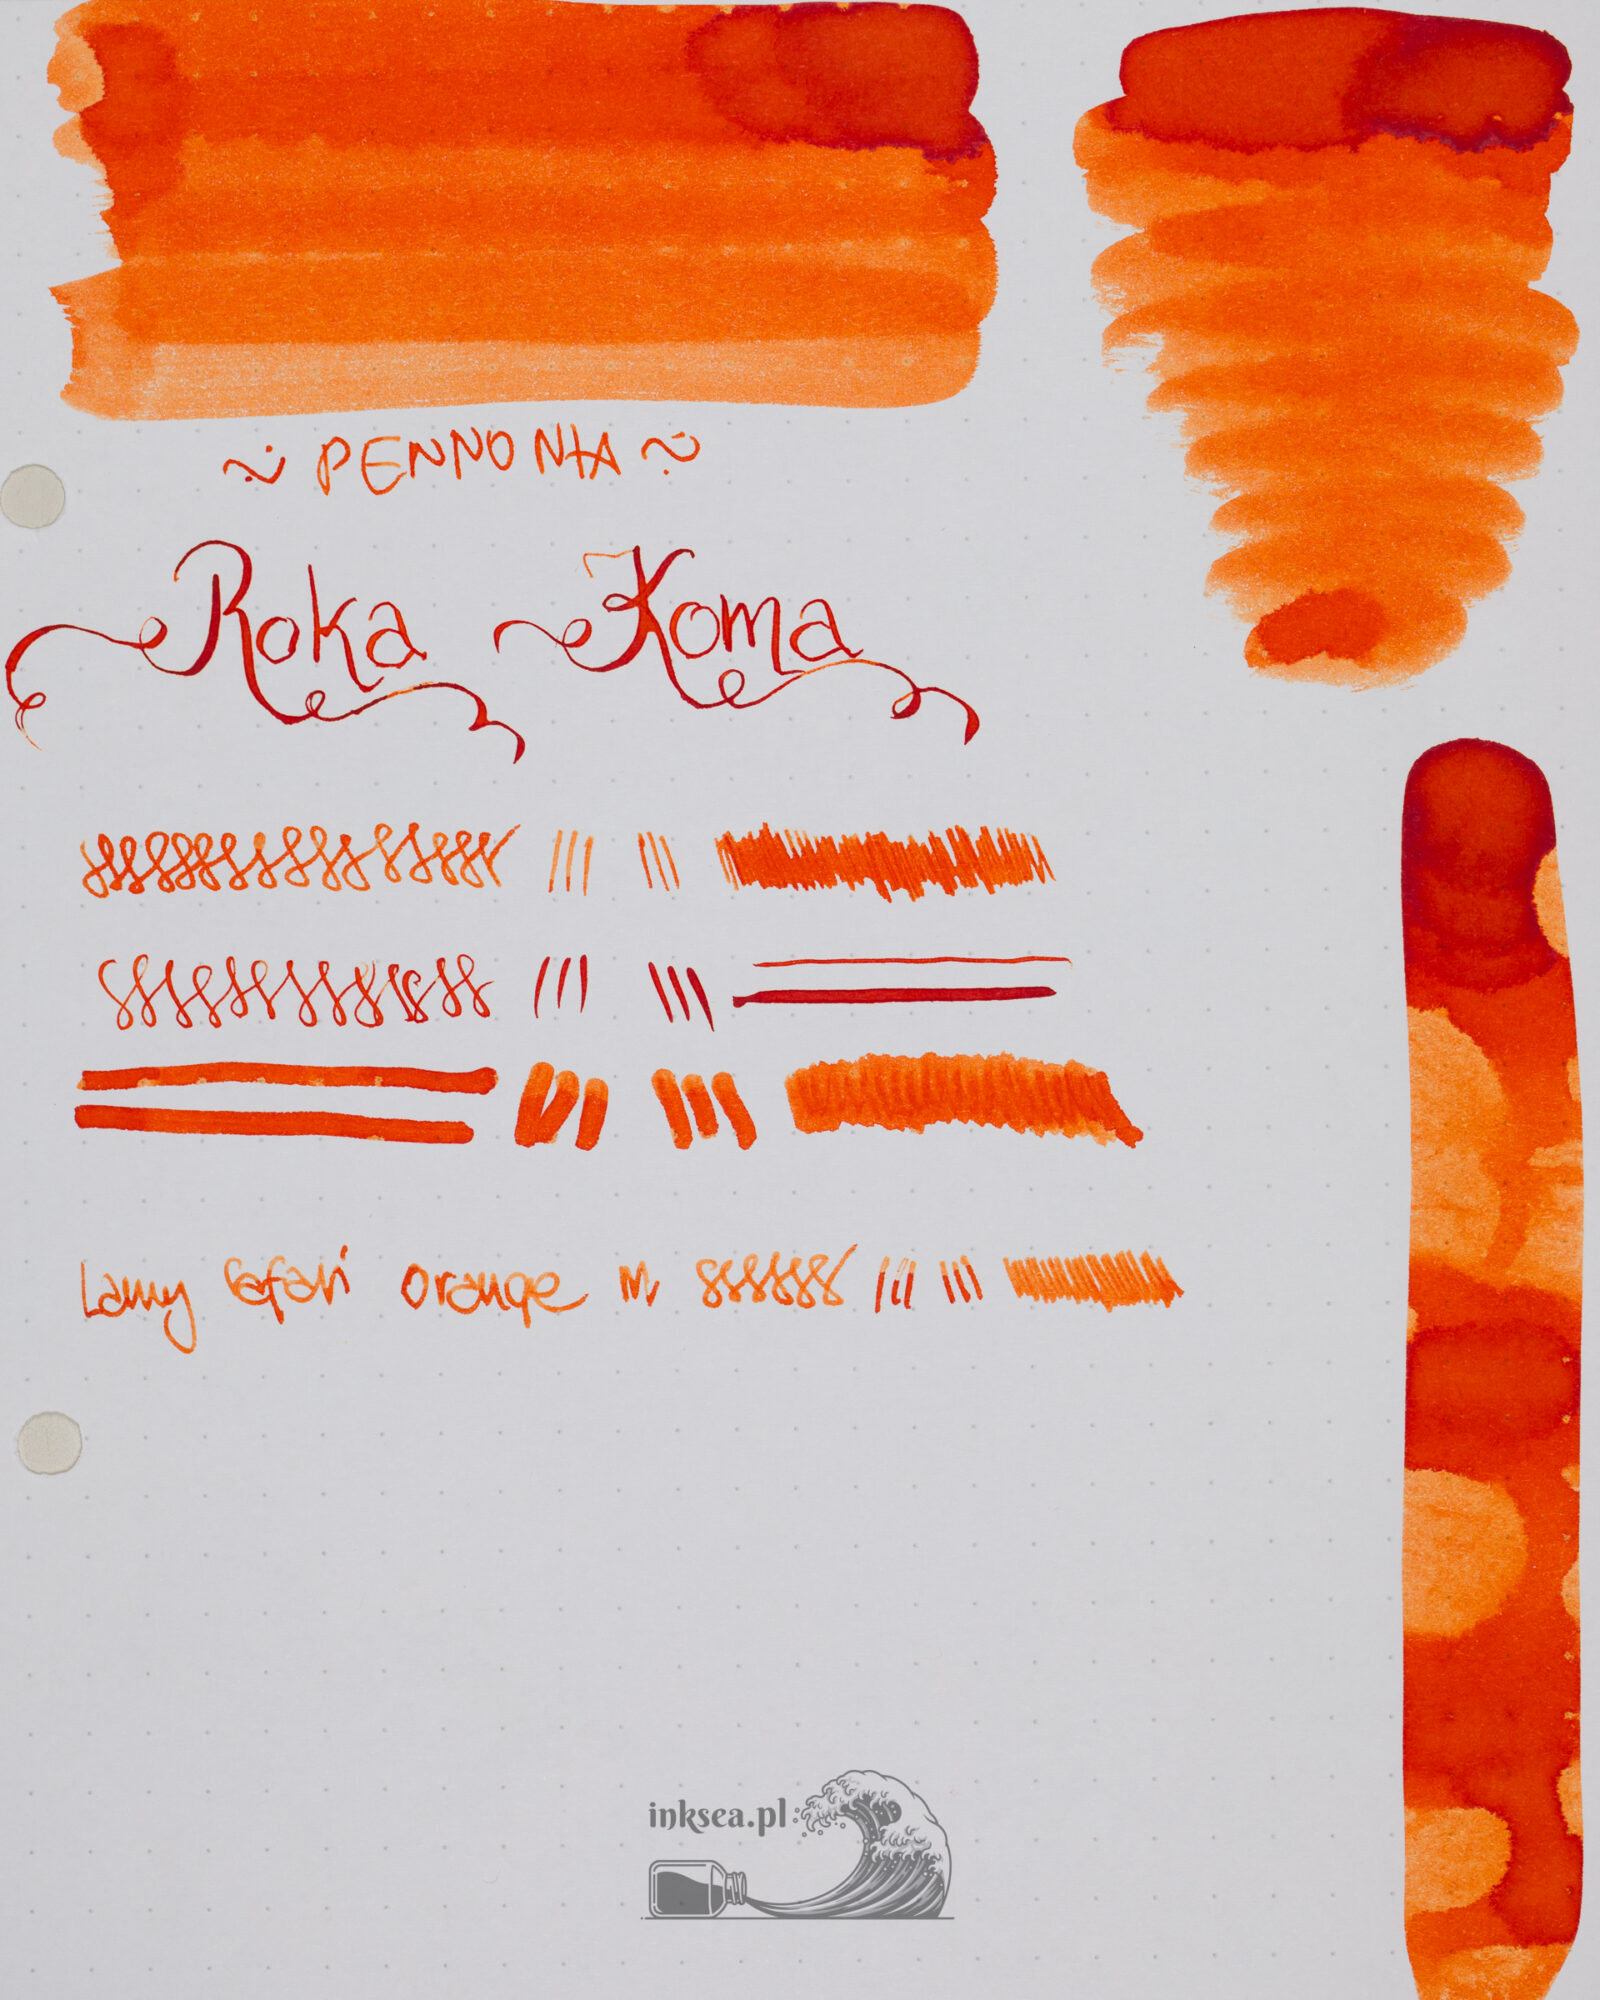 ~ PENNONIA ~
Roka Koma
Lamy Safari Orange M
inksea.pl